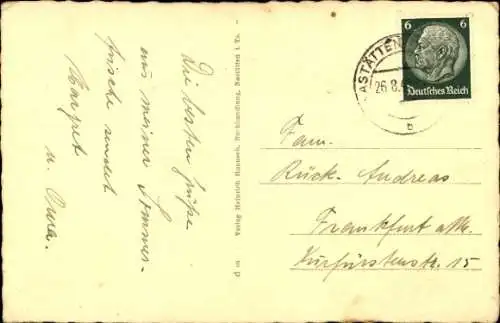 Die besten Grüße
aus meiner Sommer-
frische sendet
Margret
u. Oma.
Verlag Heinrich Hammech, Buchhandlung, Nastätten i. Ts.
6 6
Deutsches Reich
ASTÄTTEN
26.8.4
b
Fam.
Rück-Andreas
Frankfurt a.M.
Kurfürstenstr. 15